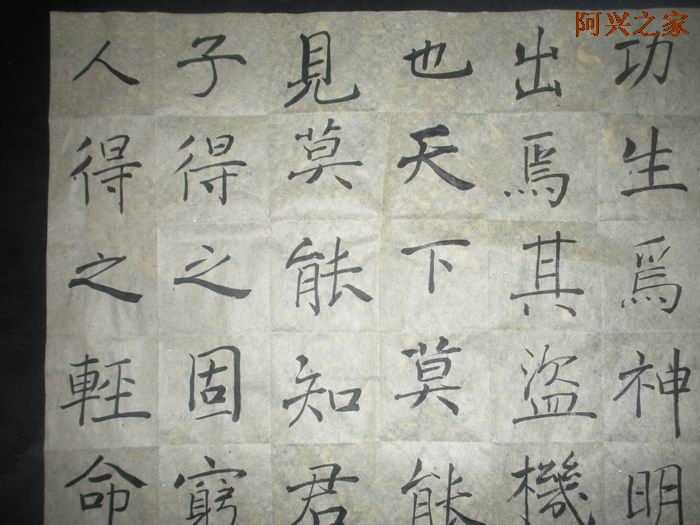 阿兴之家
功生焉神明
出焉其盜機
也天下莫能
見莫能知君
子得之固窮
人得之輕命